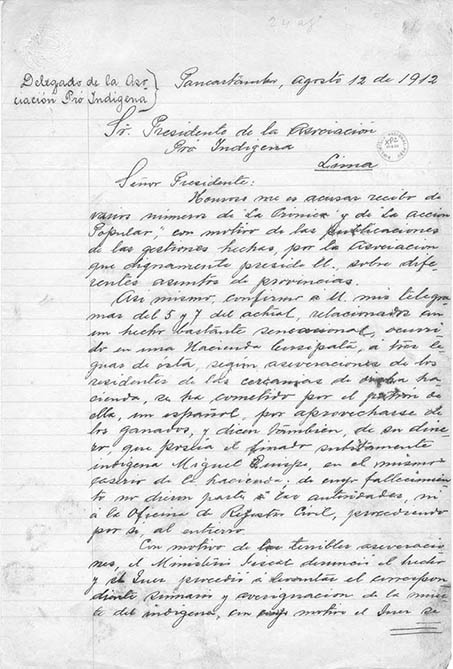 24 ag
Delegado de la Aso-
ciación Pró Indígena
Paucartambo, agosto 12 de 1912
Sr. Presidente de la Asociación
Pró Indígena
Lima
Señor Presidente:
Honroso me es acusar recibo de
varios números de "La Crónica" y de "La Acción
Popular" con motivo de las publicaciones
de las gestiones hechas, por la Asociación
que dignamente preside U., sobre dife-
rentes asuntos de provincias.
Así mismo, confirmo a U. mis telegra-
mas del 5 y 7 del actual, relacionados con
un hecho bastante sensacional, ocurri-
do en una Hacienda, á tres le-
guas de ésta, según aseveraciones de los
residentes de las cercanías de dicha ha-
cienda, se ha cometido por el patrón de
ella, un español, por aprovecharse de
los ganados, y dicen tambien, de su dine-
ro, que poseía el finado subitamente
indígena Miguel Quispe, en el mismo
caserío de la hacienda; de cuyo fallecimien-
to no dieron parte á las autoridades, ni
á la Oficina de Registro Civil, procediendo
por sí, al entierro.
Con motivo de las terribles aseveracio-
nes, el Ministerio Fiscal denunció el hecho
y el Juez procedió a levantar el correspon
diente sumario y averiguación de la muer-
te del indígena, con cuyo motivo el Juez se